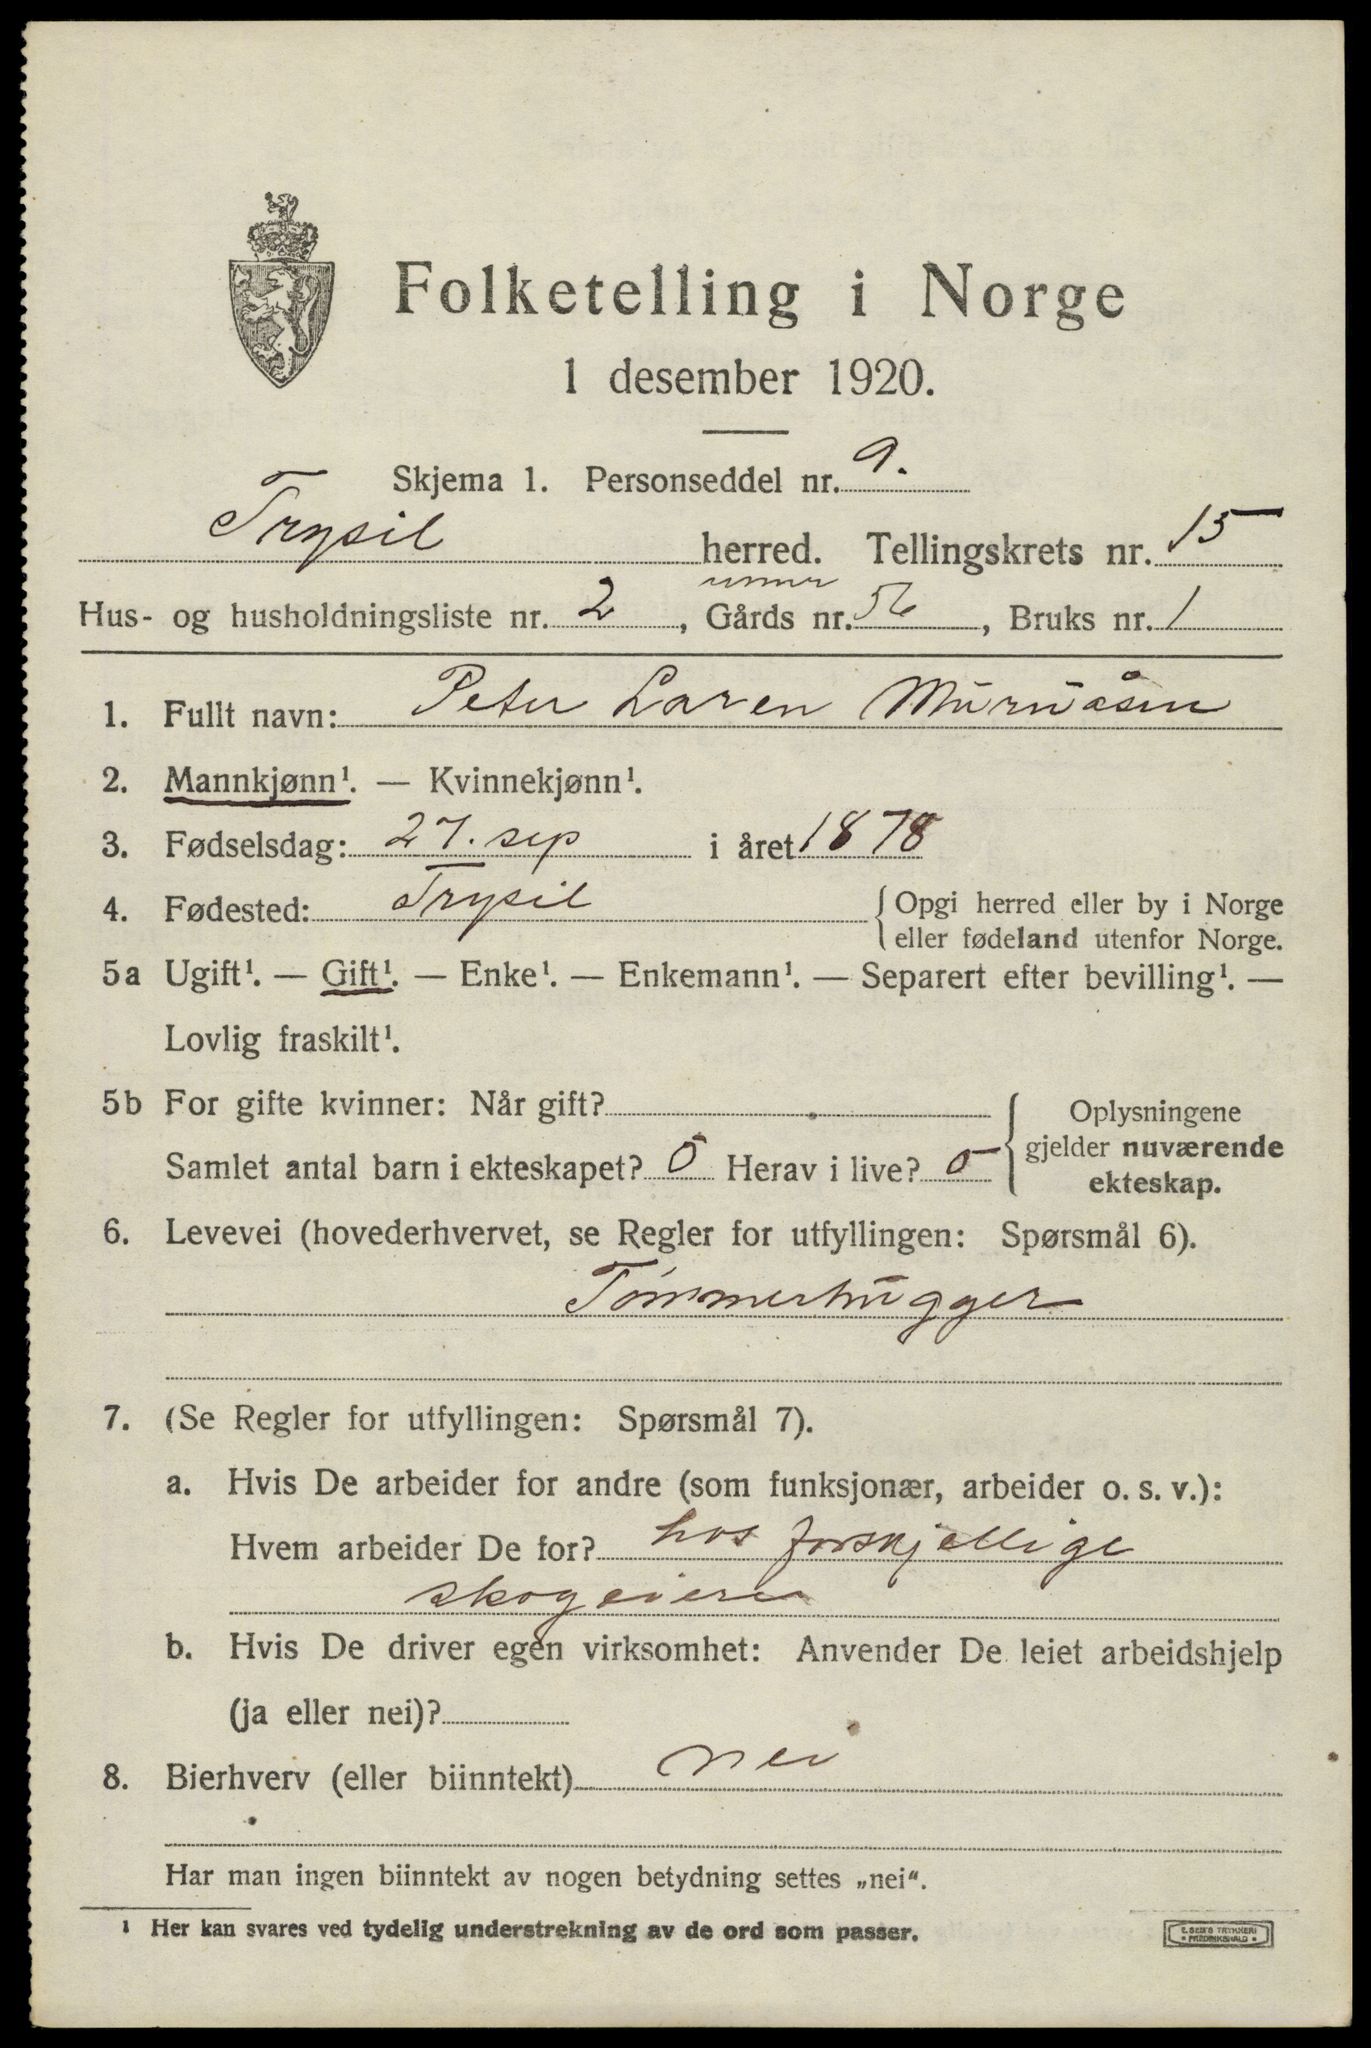 Folketelling i Norge
1 desember 1920.
Skjema 1. Personseddel nr. 9.
Trysil herred. Tellingskrets nr. 15
under
Hus- og husholdningsliste nr. 2, Gårds nr. 56, Bruks nr. 1
1. Fullt navn: Peter Laren Muruåsen
2. Mannkjønn¹. — Kvinnekjønn¹.
3. Fødselsdag: 27. sep i året 1878
4. Fødested: Trysil {Opgi herred eller by i Norge
eller fødeland utenfor Norge.
5a Ugift¹. — Gift¹. — Enke¹. — Enkemann¹. — Separert efter bevilling¹. —
Lovlig fraskilt¹.
5b For gifte kvinner: Når gift? { Oplysningene
gjelder nuværende
Samlet antal barn i ekteskapet? 5 Herav i live? 5
ekteskap.
6. Levevei (hovederhvervet, se Regler for utfyllingen: Spørsmål 6).
Tømmerhugger
7. (Se Regler for utfyllingen: Spørsmål 7).
a. Hvis De arbeider for andre (som funksjonær, arbeider o. s. v.):
Hvem arbeider De for? hos forskjellige
skogeiere
b. Hvis De driver egen virksomhet: Anvender De leiet arbeidshjelp
(ja eller nei)?
8. Bierhverv (eller biinntekt) nei
Har man ingen biinntekt av nogen betydning settes „nei“.
¹ Her kan svares ved tydelig understrekning av de ord som passer.
E. SEM'S TRYKKERI
FREDRIKSHALD